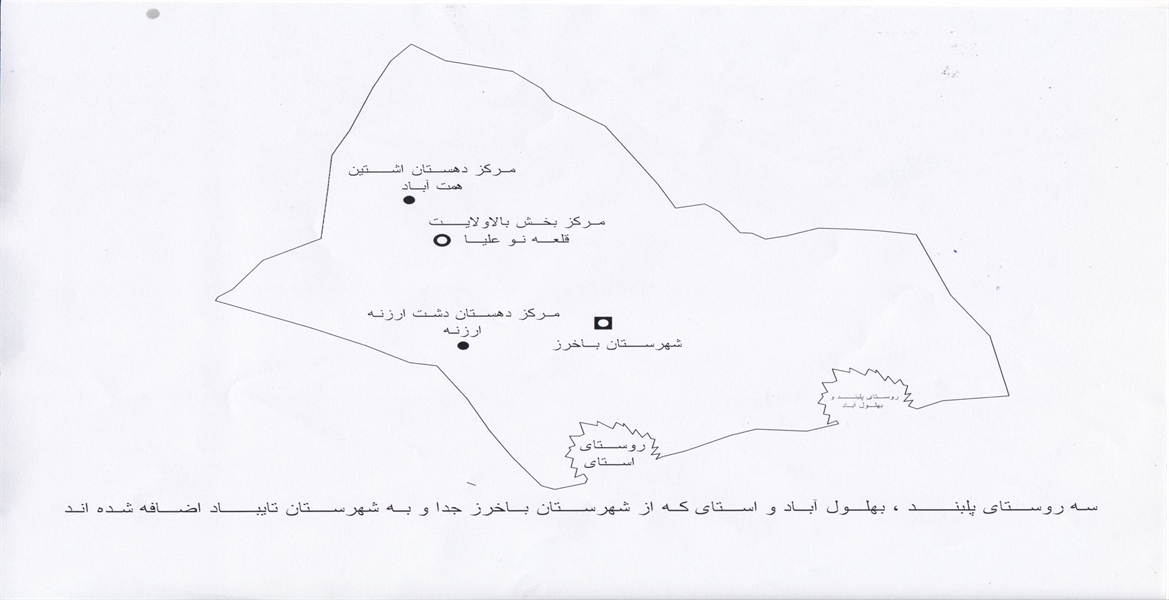 مرکز دهستان اشتین
همت آباد
مرکز بخش بالاولایت
قلعه نو علیا
مرکز دهستان دشت ارزنه
ارزنه
شهرستان باخرز
روستای پلبند و
بهلول اباد
روستای
استای
سه روستای پلبند ، بهلول آباد و استای که از شهرستان باخرز جدا و به شهرستان تایباد اضافه شده اند